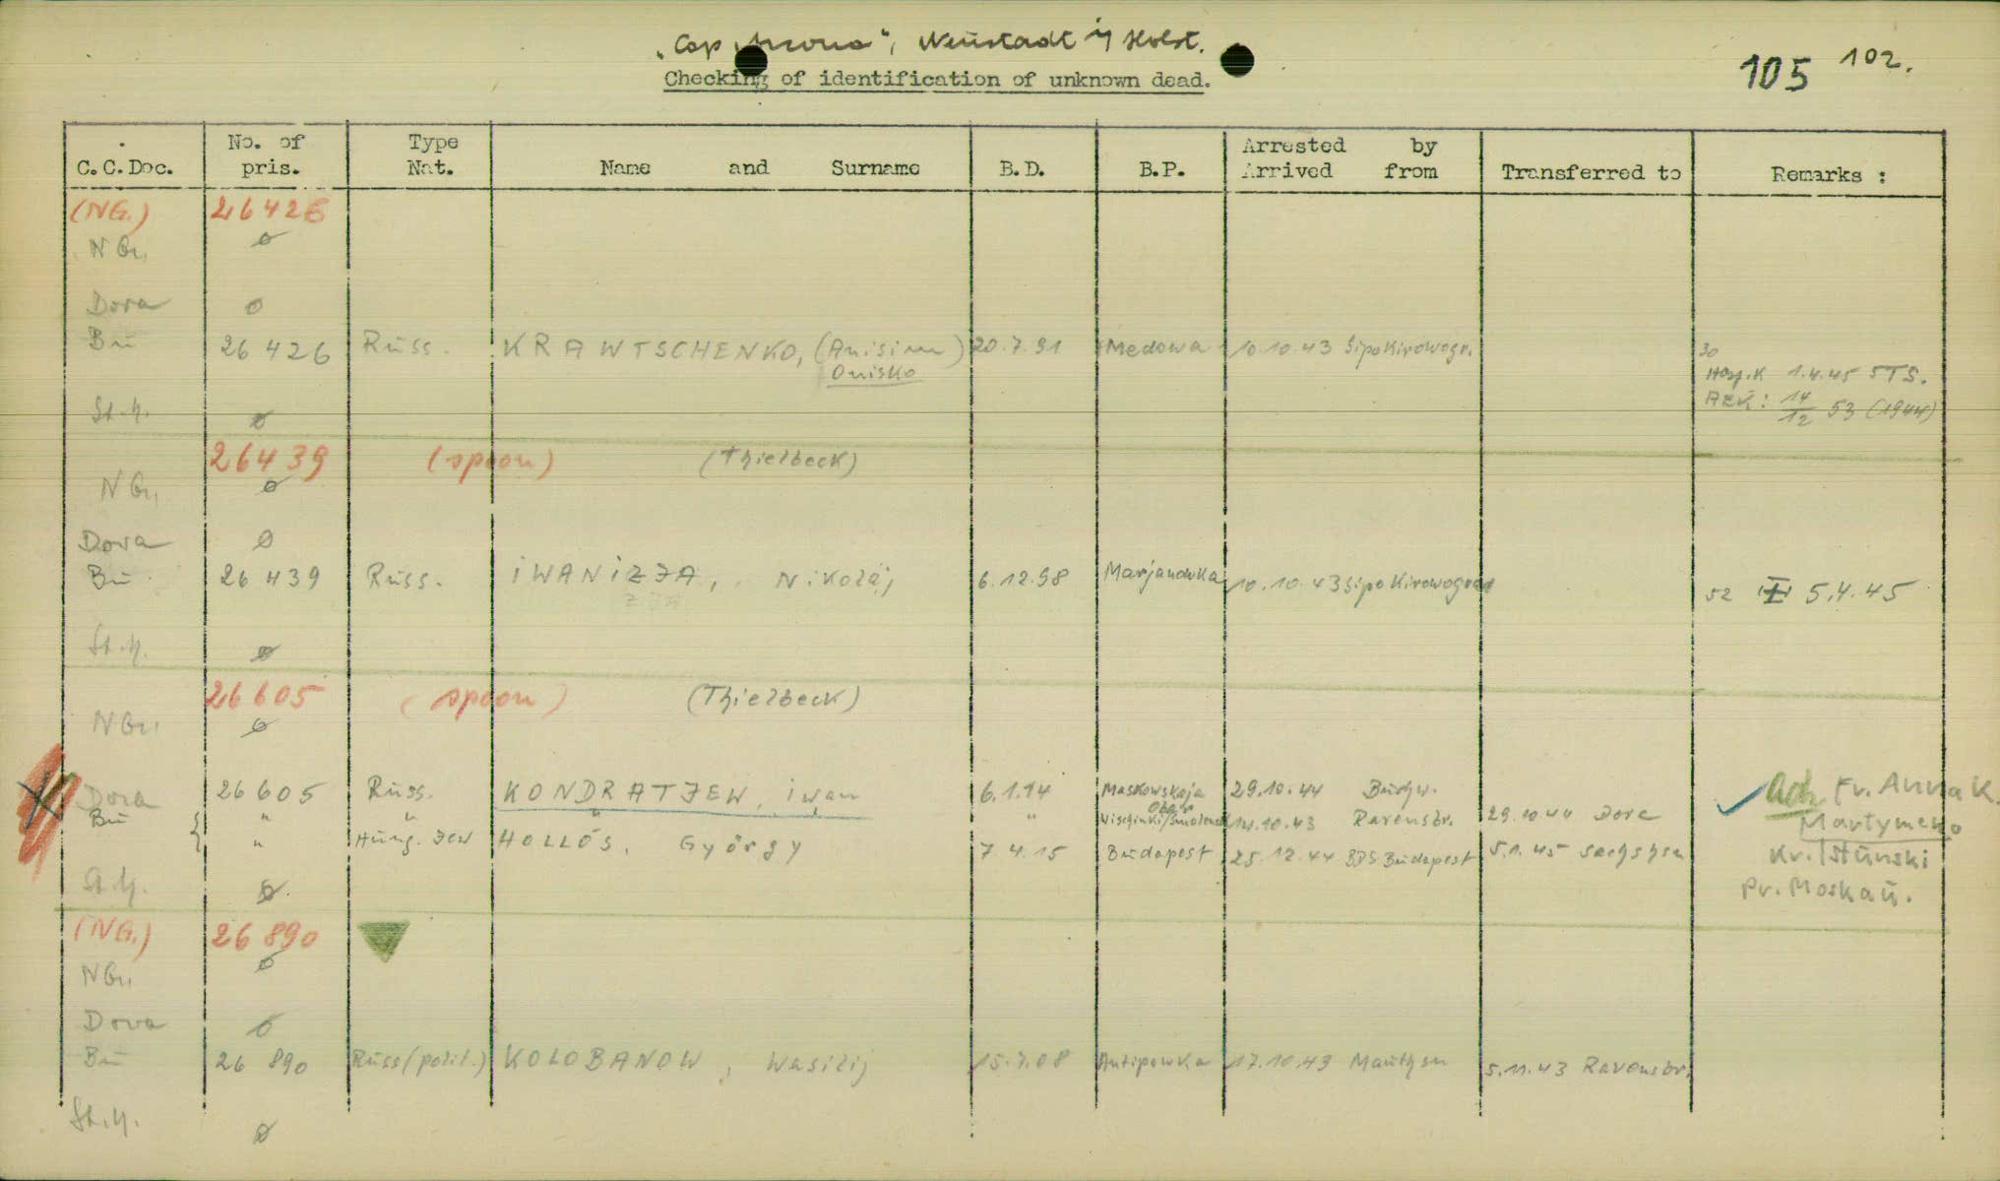 "Cap Arcona", Neustadt i/ Holst.
Checking of identification of unknown dead.
105 102.
C.C.Doc. No. of pris. Type Nat. Name and Surname B.D. B.P. Arrested by Arrived from Transferred to Remarks :
(NG.) 26426
N Gr. ø
Dora o
Bu 26 426 Russ. KRAWTSCHENKO, (Anisim) 20.7.91 Medowa 10.10.43 Sipo Kirowogr. 30
Onisko 1.4.45 STS.
St.H. ø 14/12 53 (1944)
26439 (spoon) (Thielbeck)
N Gr. ø
Dora ø
Bu 26 439 Russ. IWANIZJA, Nikolaj 6.12.98 Marjanowka 10.10.43 Sipo Kirowograd 52 I 5.4.45
St.H. ø
26605 (spoon) (Thielbeck)
N Gr. ø
Dora 26 605 Russ. KONDRATJEW, iwan 6.1.14 Maskowskaja 29.10.44 Buchw. Fr. Anna K.
Bu " " " " 14.10.43 Ravensbr. 29.10.44 Dora Martymeno
" Hung. Jew HOLLÓS, György 7.4.15 Budapest 25.12.44 BDS Budapest 5.1.45 Sachshsn Kr. Istunski
St.H. ø Pr. Moskau.
(NG.) 26 890
N Gr. ø
Dora ø
Bu 26 890 Russ (polit.) KOLOBANOW, Wasilij 15.7.08 Antipowka 17.10.43 Mauthsn 5.11.43 Ravensbr.
St.H. ø